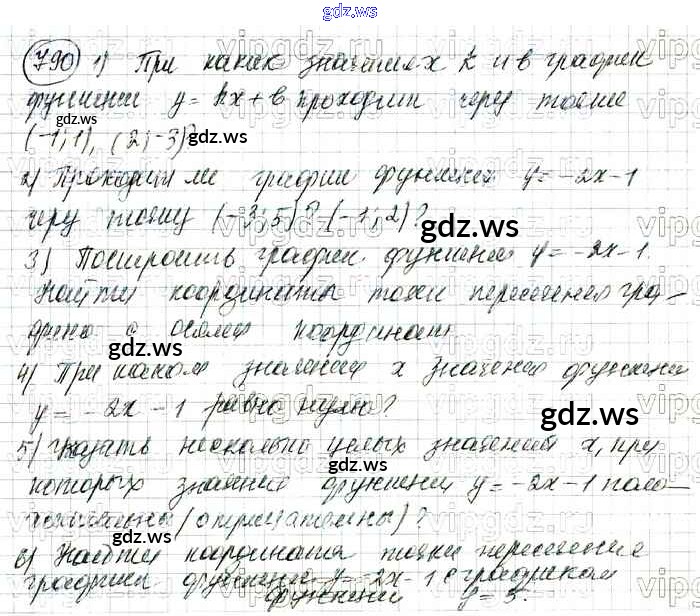 gdz.ws
790 1) При каких значениях k и в график
функции y = kx + в проходит через точки
(-1; 1), (2; -3)?
2) Проходит ли график функции y = -2x - 1
через точку (-3; 5)? (-1; 2)?
3) Построить график функции y = -2x - 1.
Найти координаты точки пересечения гра-
фика с осями координат
4) При каком значении x значения функции
y = -2x - 1 равно нулю?
5) Указать несколько целых значений x, при
которых значение функции y = -2x - 1 поло-
жительны (отрицательны)?
6) Найти координаты точки пересечения
графики функции y = -2x - 1 с графиком
функции y = 5.
gdz.ws
gdz.ws
gdz.ws
gdz.ws
gdz.ws